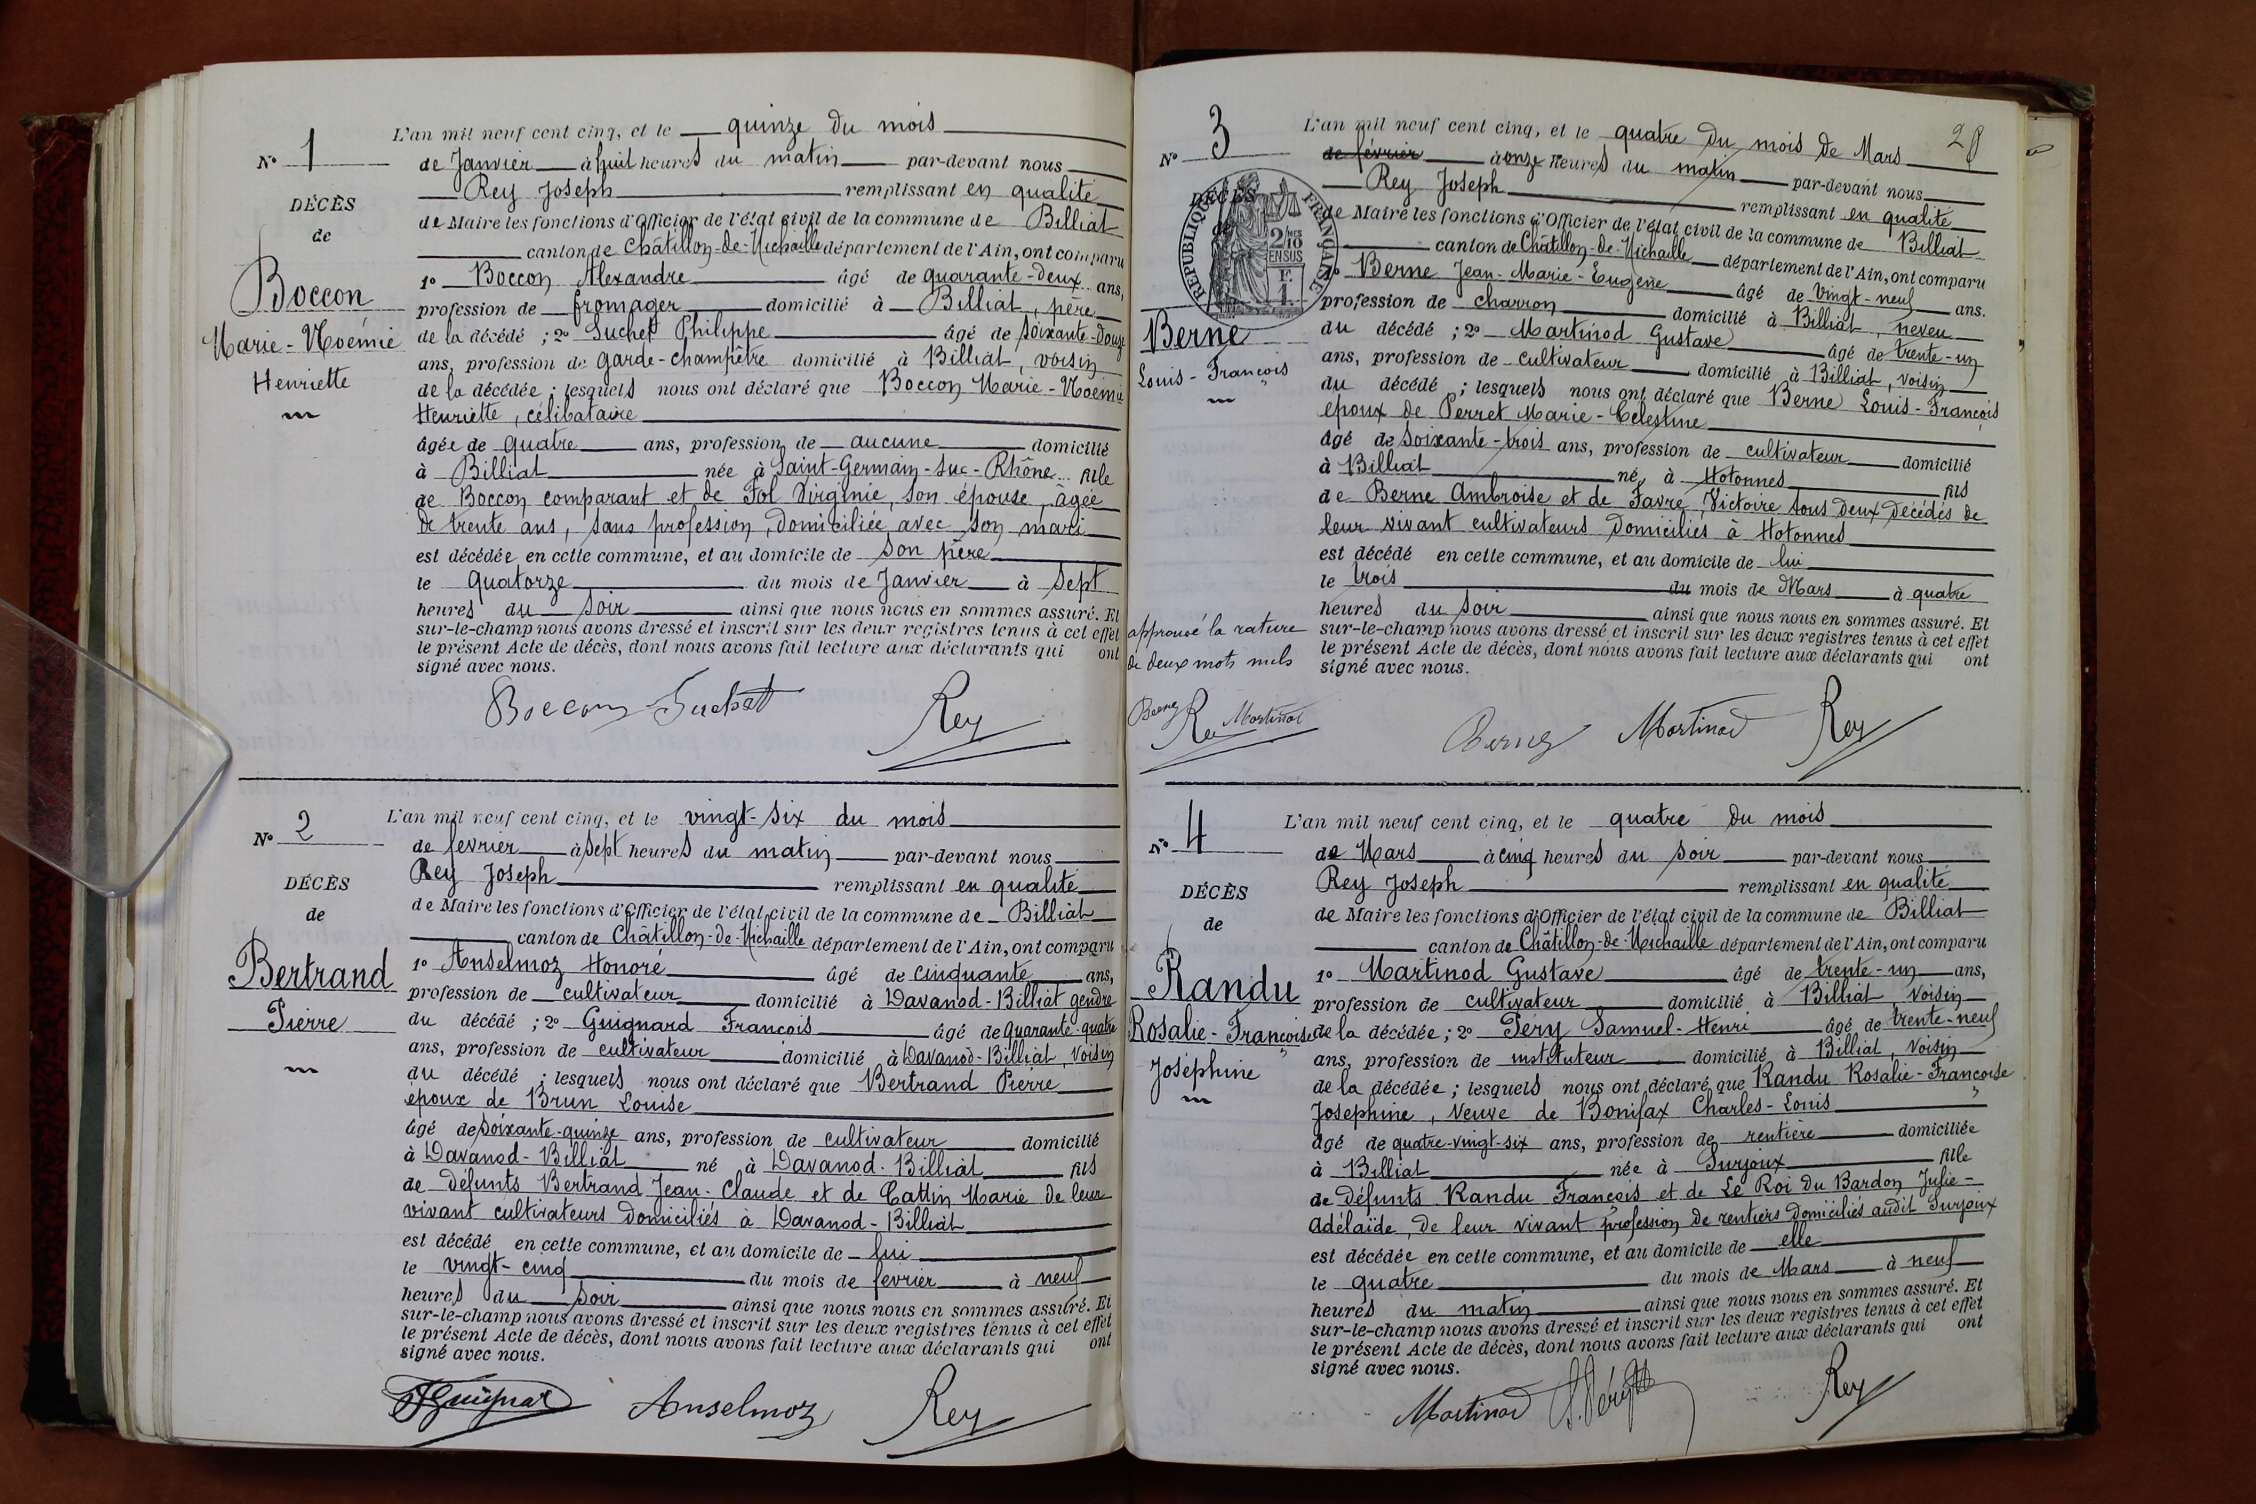 N° 1
DÉCÈS
de
Boccon
Marie-Noémie
Henriette
L'an mil neuf cent cinq, et le quinze du mois
de Janvier à huit heures du matin par-devant nous
Rey Joseph remplissant en qualité
de Maire les fonctions d'Officier de l'état civil de la commune de Billiat
canton de Châtillon-de-Michaille département de l'Ain, ont comparu
1° Boccon Alexandre âgé de quarante-deux ans,
profession de fromager domicilié à Billiat, père
de la décédé ; 2° Suchet Philippe âgé de soixante-douze
ans, profession de garde-champêtre domicilié à Billiat, voisin
de la décédée ; lesquels nous ont déclaré que Boccon Marie-Noémie
Henriette, célibataire
âgée de quatre ans, profession de aucune domicilié
à Billiat née à Saint-Germain-sur-Rhône fille
de Boccon comparant et de Fol Virginie, son épouse, âgée
de trente ans, sans profession, domiciliée avec son mari
est décédée en cette commune, et au domicile de son père
le quatorze du mois de Janvier à sept
heures du soir ainsi que nous nous en sommes assuré. Et
sur-le-champ nous avons dressé et inscrit sur les deux registres tenus à cet effet
le présent Acte de décès, dont nous avons fait lecture aux déclarants qui ont
signé avec nous.
Boccon Suchet Rey
N° 2
DÉCÈS
de
Bertrand
Pierre
L'an mil neuf cent cinq, et le vingt-six du mois
de février à sept heures du matin par-devant nous
Rey Joseph remplissant en qualité
de Maire les fonctions d'Officier de l'état civil de la commune de Billiat
canton de Châtillon-de-Michaille département de l'Ain, ont comparu
1° Anselmoz Honoré âgé de cinquante ans,
profession de cultivateur domicilié à Davanod-Billiat gendre
du décédé ; 2° Guignard François âgé de quarante-quatre
ans, profession de cultivateur domicilié à Davanod-Billiat, voisin
du décédé ; lesquels nous ont déclaré que Bertrand Pierre
époux de Brun Louise
âgé de soixante-quinze ans, profession de cultivateur domicilié
à Davanod-Billiat né à Davanod-Billiat fils
de défunts Bertrand Jean-Claude et de Cattin Marie de leur
vivant cultivateurs domiciliés à Davanod-Billiat
est décédé en cette commune, et au domicile de lui
le vingt-cinq du mois de février à neuf
heures du soir ainsi que nous nous en sommes assuré. Et
sur-le-champ nous avons dressé et inscrit sur les deux registres tenus à cet effet
le présent Acte de décès, dont nous avons fait lecture aux déclarants qui ont
signé avec nous.
Guignar Anselmoz Rey
28
N° 3
DÉCÈS
de
RÉPUBLIQUE FRANÇAISE
2 MES
10
EN SUS
F.
1.
Berne
Louis-François
L'an mil neuf cent cinq, et le quatre du mois de Mars
de février à onze heures du matin par-devant nous
Rey Joseph remplissant en qualité
de Maire les fonctions d'Officier de l'état civil de la commune de Billiat
canton de Châtillon-de-Michaille département de l'Ain, ont comparu
1° Berne Jean-Marie-Eugène âgé de vingt-neuf ans.
profession de charron domicilié à Billiat, neveu
du décédé ; 2° Martinod Gustave âgé de trente-un
ans, profession de cultivateur domicilié à Billiat, voisin
du décédé ; lesquels nous ont déclaré que Berne Louis-François
époux de Perret Marie-Célestine
âgé de soixante-trois ans, profession de cultivateur domicilié
à Billiat né à Hotonnes fils
de Berne Ambroise et de Favre Victoire tous deux décédés de
leur vivant cultivateurs domiciliés à Hotonnes
est décédé en cette commune, et au domicile de lui
le trois du mois de Mars à quatre
heures du soir ainsi que nous nous en sommes assuré. Et
sur-le-champ nous avons dressé et inscrit sur les deux registres tenus à cet effet
le présent Acte de décès, dont nous avons fait lecture aux déclarants qui ont
signé avec nous.
approuvé la rature
de deux mots nuls
Berne Rey Martinod
Berne Martinod Rey
N° 4
DÉCÈS
de
Randu
Rosalie-Françoise
Joséphine
L'an mil neuf cent cinq, et le quatre du mois
de Mars à cinq heures du soir par-devant nous
Rey Joseph remplissant en qualité
de Maire les fonctions d'Officier de l'état civil de la commune de Billiat
canton de Châtillon-de-Michaille département de l'Ain, ont comparu
1° Martinod Gustave âgé de trente-un ans,
profession de cultivateur domicilié à Billiat, voisin
de la décédée ; 2° Péry Samuel-Henri âgé de trente-neuf
ans, profession de instituteur domicilié à Billiat, voisin
de la décédée ; lesquels nous ont déclaré que Randu Rosalie-Françoise
Joséphine, veuve de Bonifax Charles-Louis
âgé de quatre-vingt-six ans, profession de rentière domiciliée
à Billiat née à Surjoux fille
de défunts Randu François et de Le Roi du Bardon Julie-
Adélaïde, de leur vivant profession de rentiers domiciliés audit Surjoux
est décédée en cette commune, et au domicile de elle
le quatre du mois de Mars à neuf
heures du matin ainsi que nous nous en sommes assuré. Et
sur-le-champ nous avons dressé et inscrit sur les deux registres tenus à cet effet
le présent Acte de décès, dont nous avons fait lecture aux déclarants qui ont
signé avec nous.
Martinod S. Péry Rey